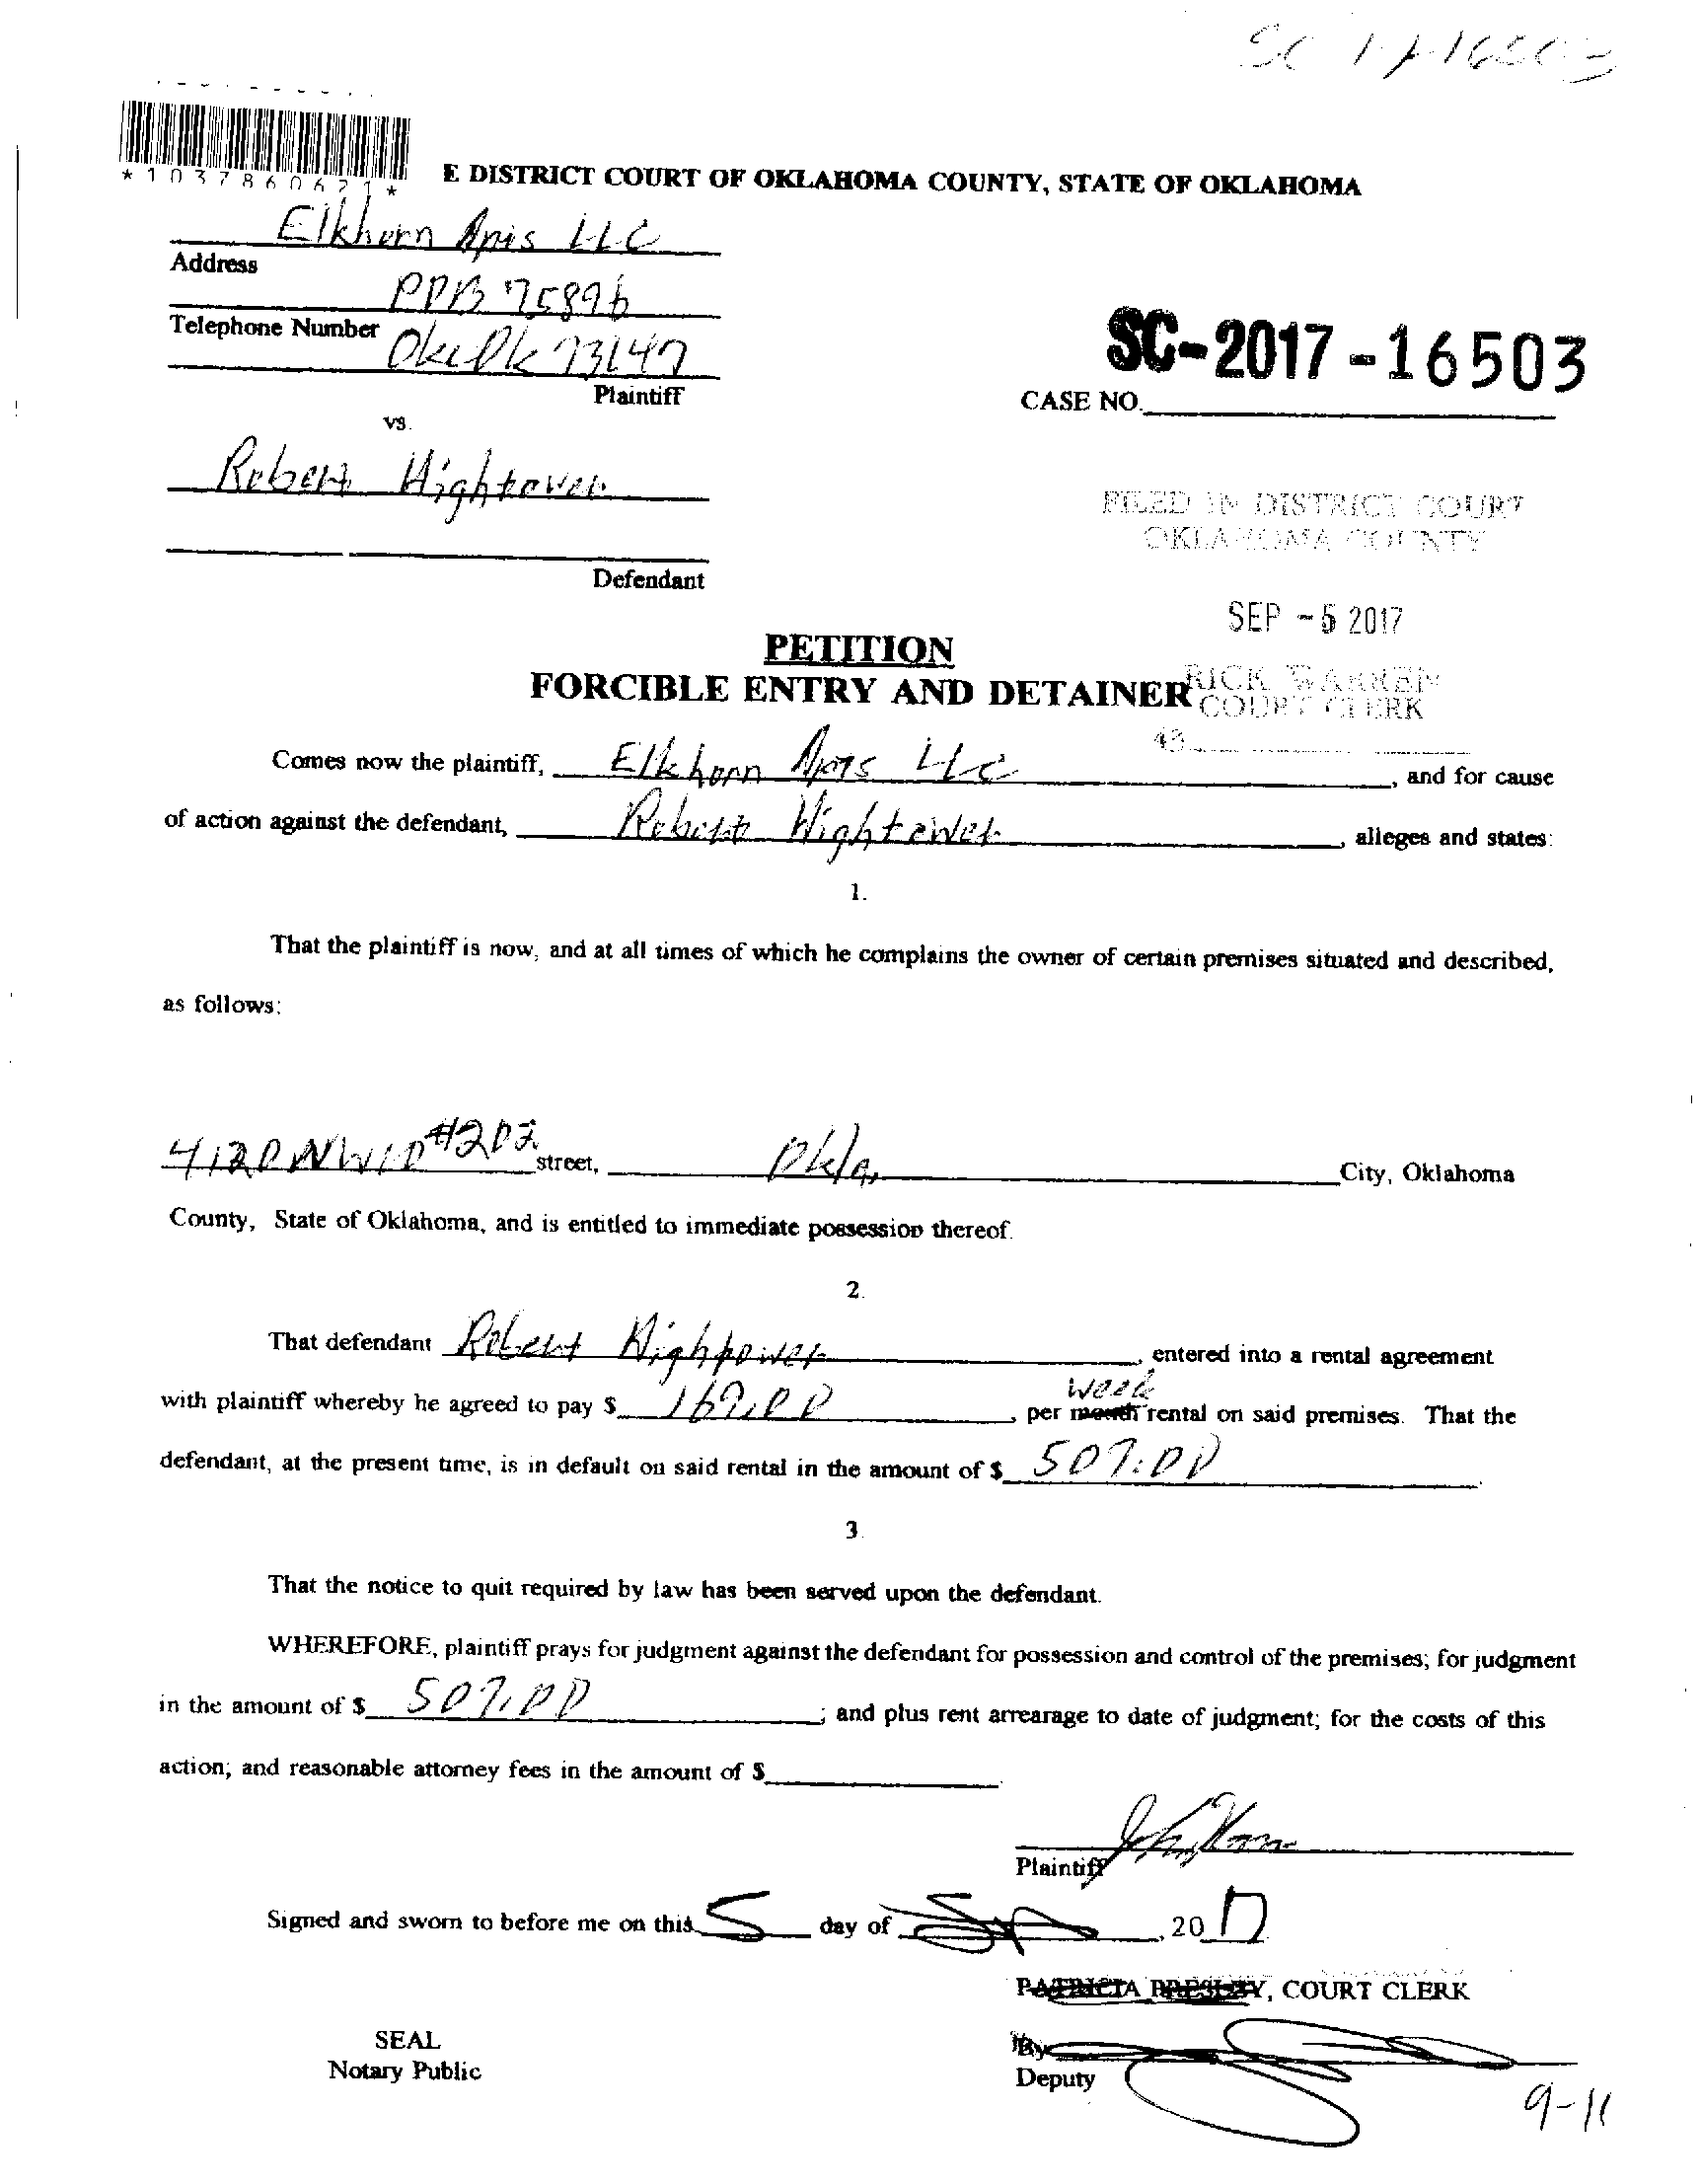 SC 17-16503
*1037860621*
E DISTRICT COURT OF OKLAHOMA COUNTY, STATE OF OKLAHOMA
Elkhorn Apts LLC
Address
POB 75896
Telephone Number
Okc Ok 73147
Plaintiff
SC-2017-16503
CASE NO.
vs.
Robert Hightower
FILED IN DISTRICT COURT
OKLAHOMA COUNTY
Defendant
SEP -5 2017
PETITION
FORCIBLE ENTRY AND DETAINER
RICK WARREN
COURT CLERK
Comes now the plaintiff, Elkhorn Apts LLC, and for cause
of action against the defendant, Robert Hightower, alleges and states:
1.
That the plaintiff is now, and at all times of which he complains the owner of certain premises situated and described,
as follows:
4120 NW 10 #202 street, Okla. City, Oklahoma
County, State of Oklahoma, and is entitled to immediate possession thereof.
2.
That defendant Robert Hightower, entered into a rental agreement
with plaintiff whereby he agreed to pay $ 169.00, per month week rental on said premises. That the
defendant, at the present time, is in default on said rental in the amount of $ 507.00.
3.
That the notice to quit required by law has been served upon the defendant.
WHEREFORE, plaintiff prays for judgment against the defendant for possession and control of the premises; for judgment
in the amount of $ 507.00; and plus rent arrearage to date of judgment; for the costs of this
action; and reasonable attorney fees in the amount of $
Plaintiff
Signed and sworn to before me on this 5 day of Sep, 2017
PATRICIA PRESLEY, COURT CLERK
SEAL
Notary Public
By
Deputy
9-11